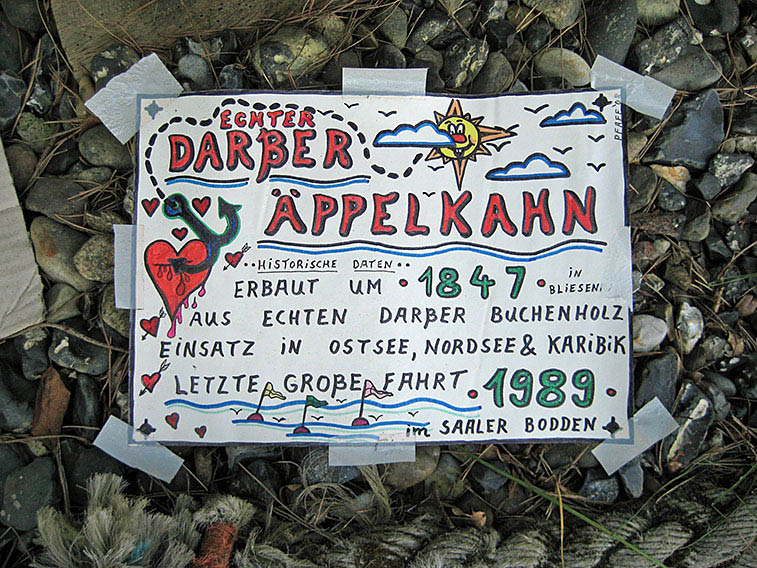 ECHTER
DARßER
ÄPPELKAHN
HISTORISCHE DATEN
ERBAUT UM • 1847 • IN BLIESEN..
AUS ECHTEN DARßER BUCHENHOLZ
EINSATZ IN OSTSEE, NORDSEE & KARIBIK
LETZTE GROßE FAHRT • 1989 •
im SAALER BODDEN •